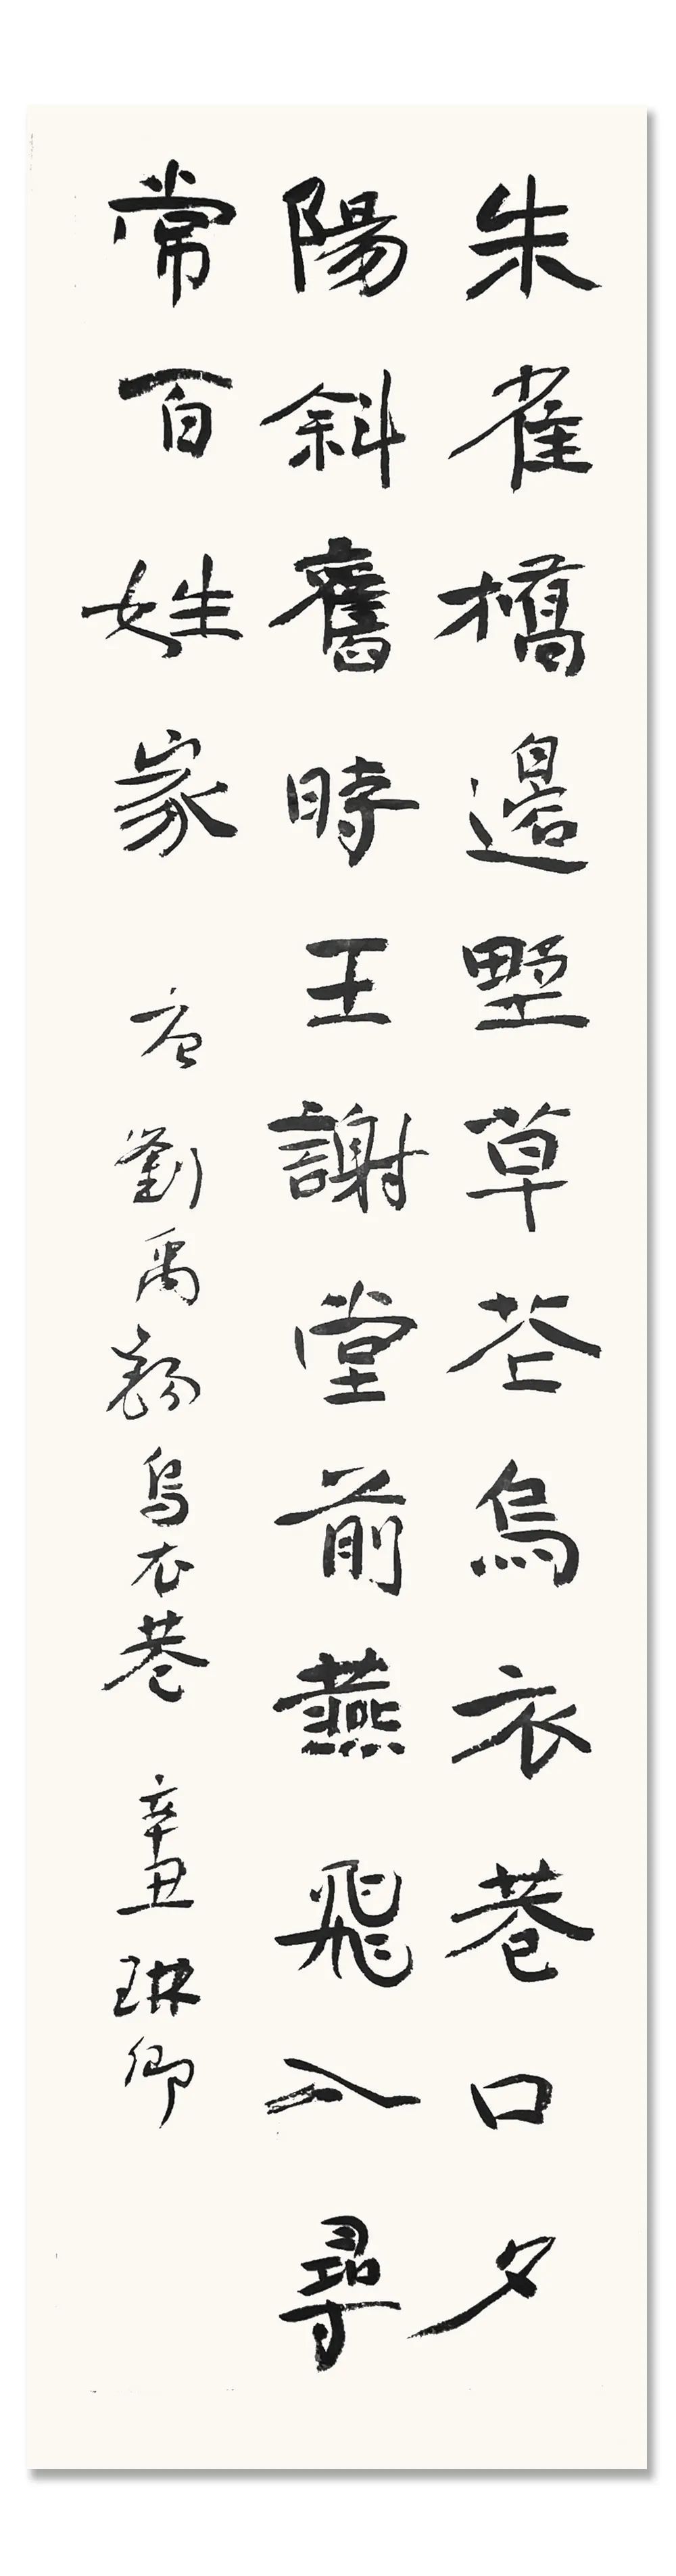 朱雀橋邊野草花烏衣巷口夕
陽斜舊時王謝堂前燕飛入尋
常百姓家 唐劉禹錫烏衣巷 辛丑琳卿